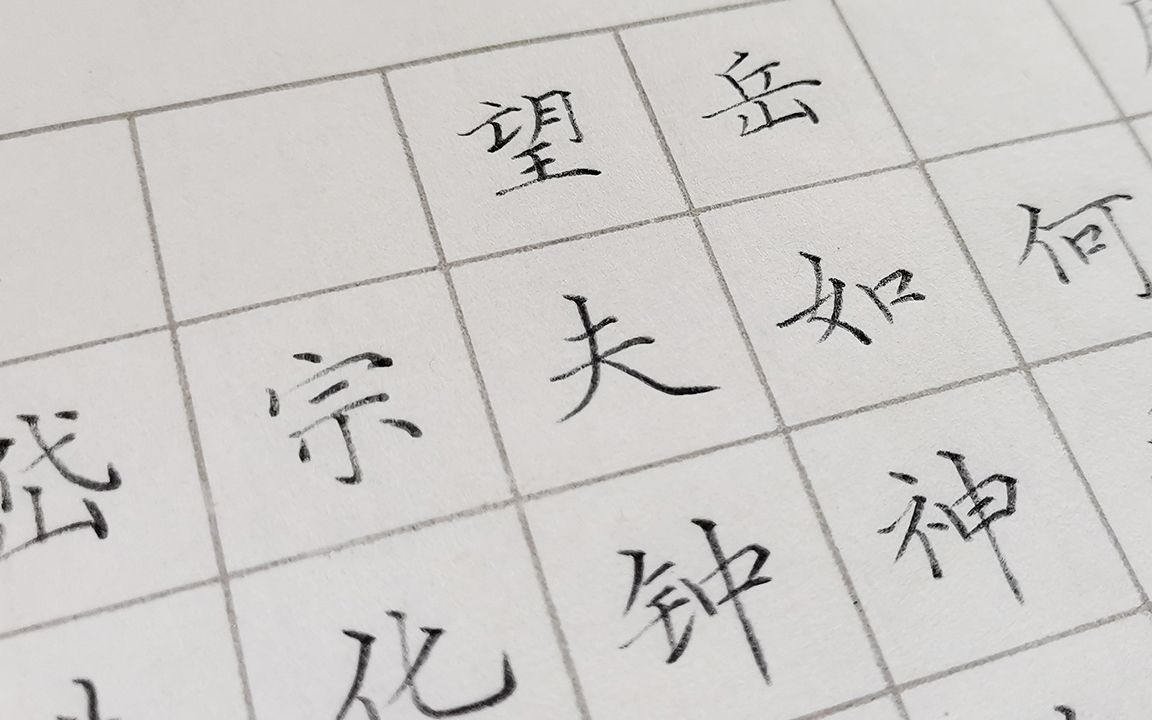 望岳
岱宗夫如何
化钟神